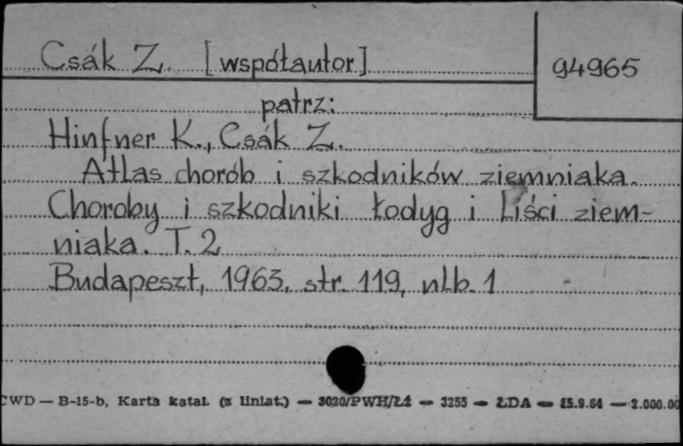 Csák Z. [współautor]
94965
patrz:
Hinfner K., Csák Z.
Atlas chorób i szkodników ziemniaka.
Choroby i szkodniki łodyg i liści ziem-
niaka. T. 2
Budapeszt, 1963, str. 119, nlb. 1
CWD — B-15-b, Karta katal. (z liniat.) — 3020/PWH/Łź — 3255 — ŁDA — 15.9.64 — 2.000.00